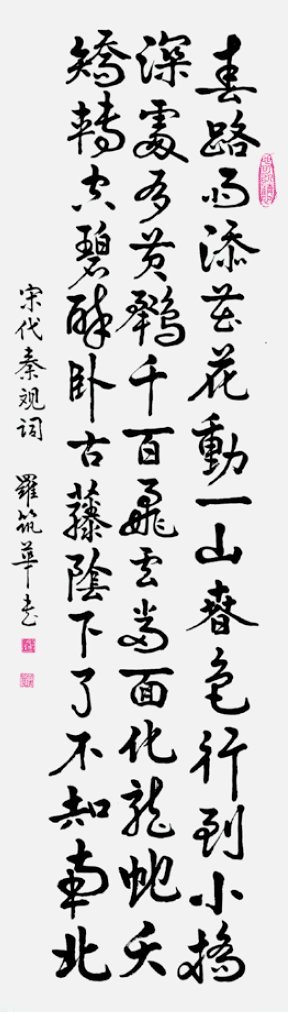 春路雨添花花動一山春色行到小橋
深處有黃鸝千百飛云當面化龍蛇夭
矯轉空碧醉卧古藤陰下了不知南北
宋代秦观词 羅筑華书